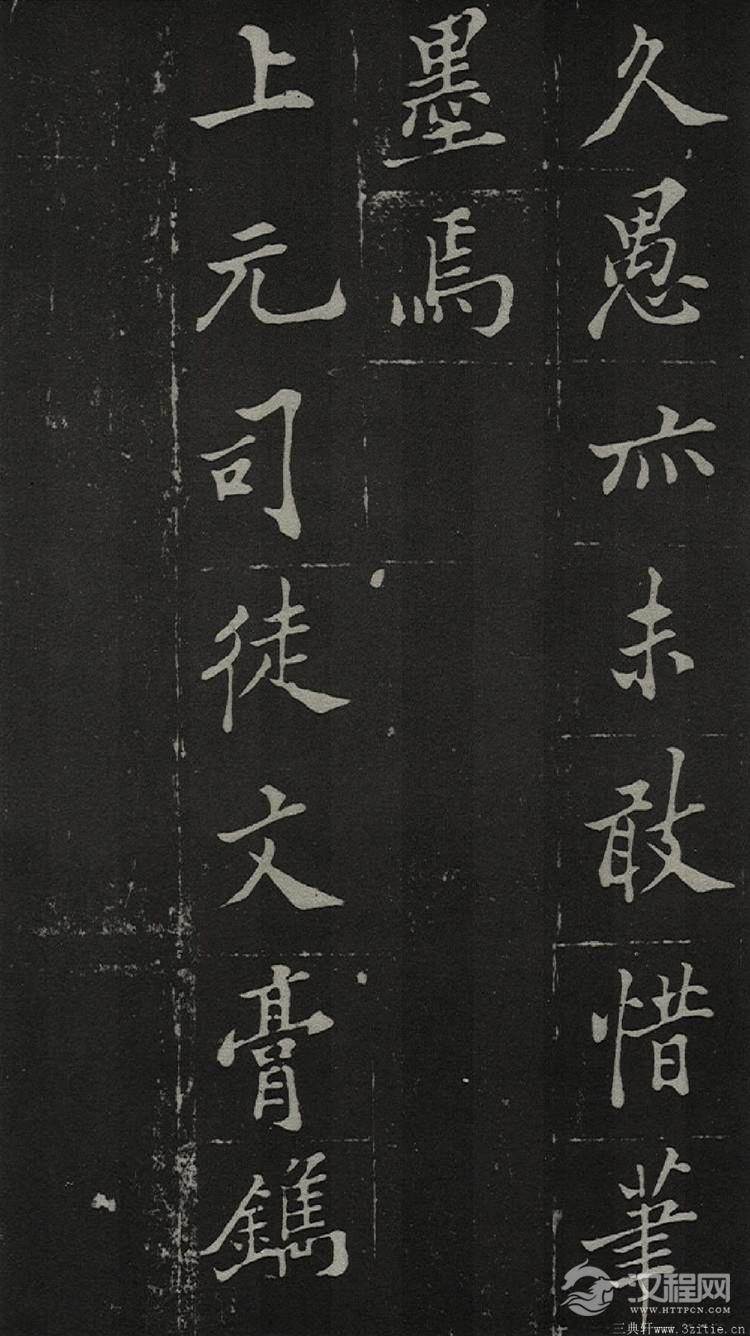 久愚亦未敢惜筆
墨焉
上元司徒文膏鐫
汉程网
WWW.HTTPCN.COM
三典轩www.3zitie.cn